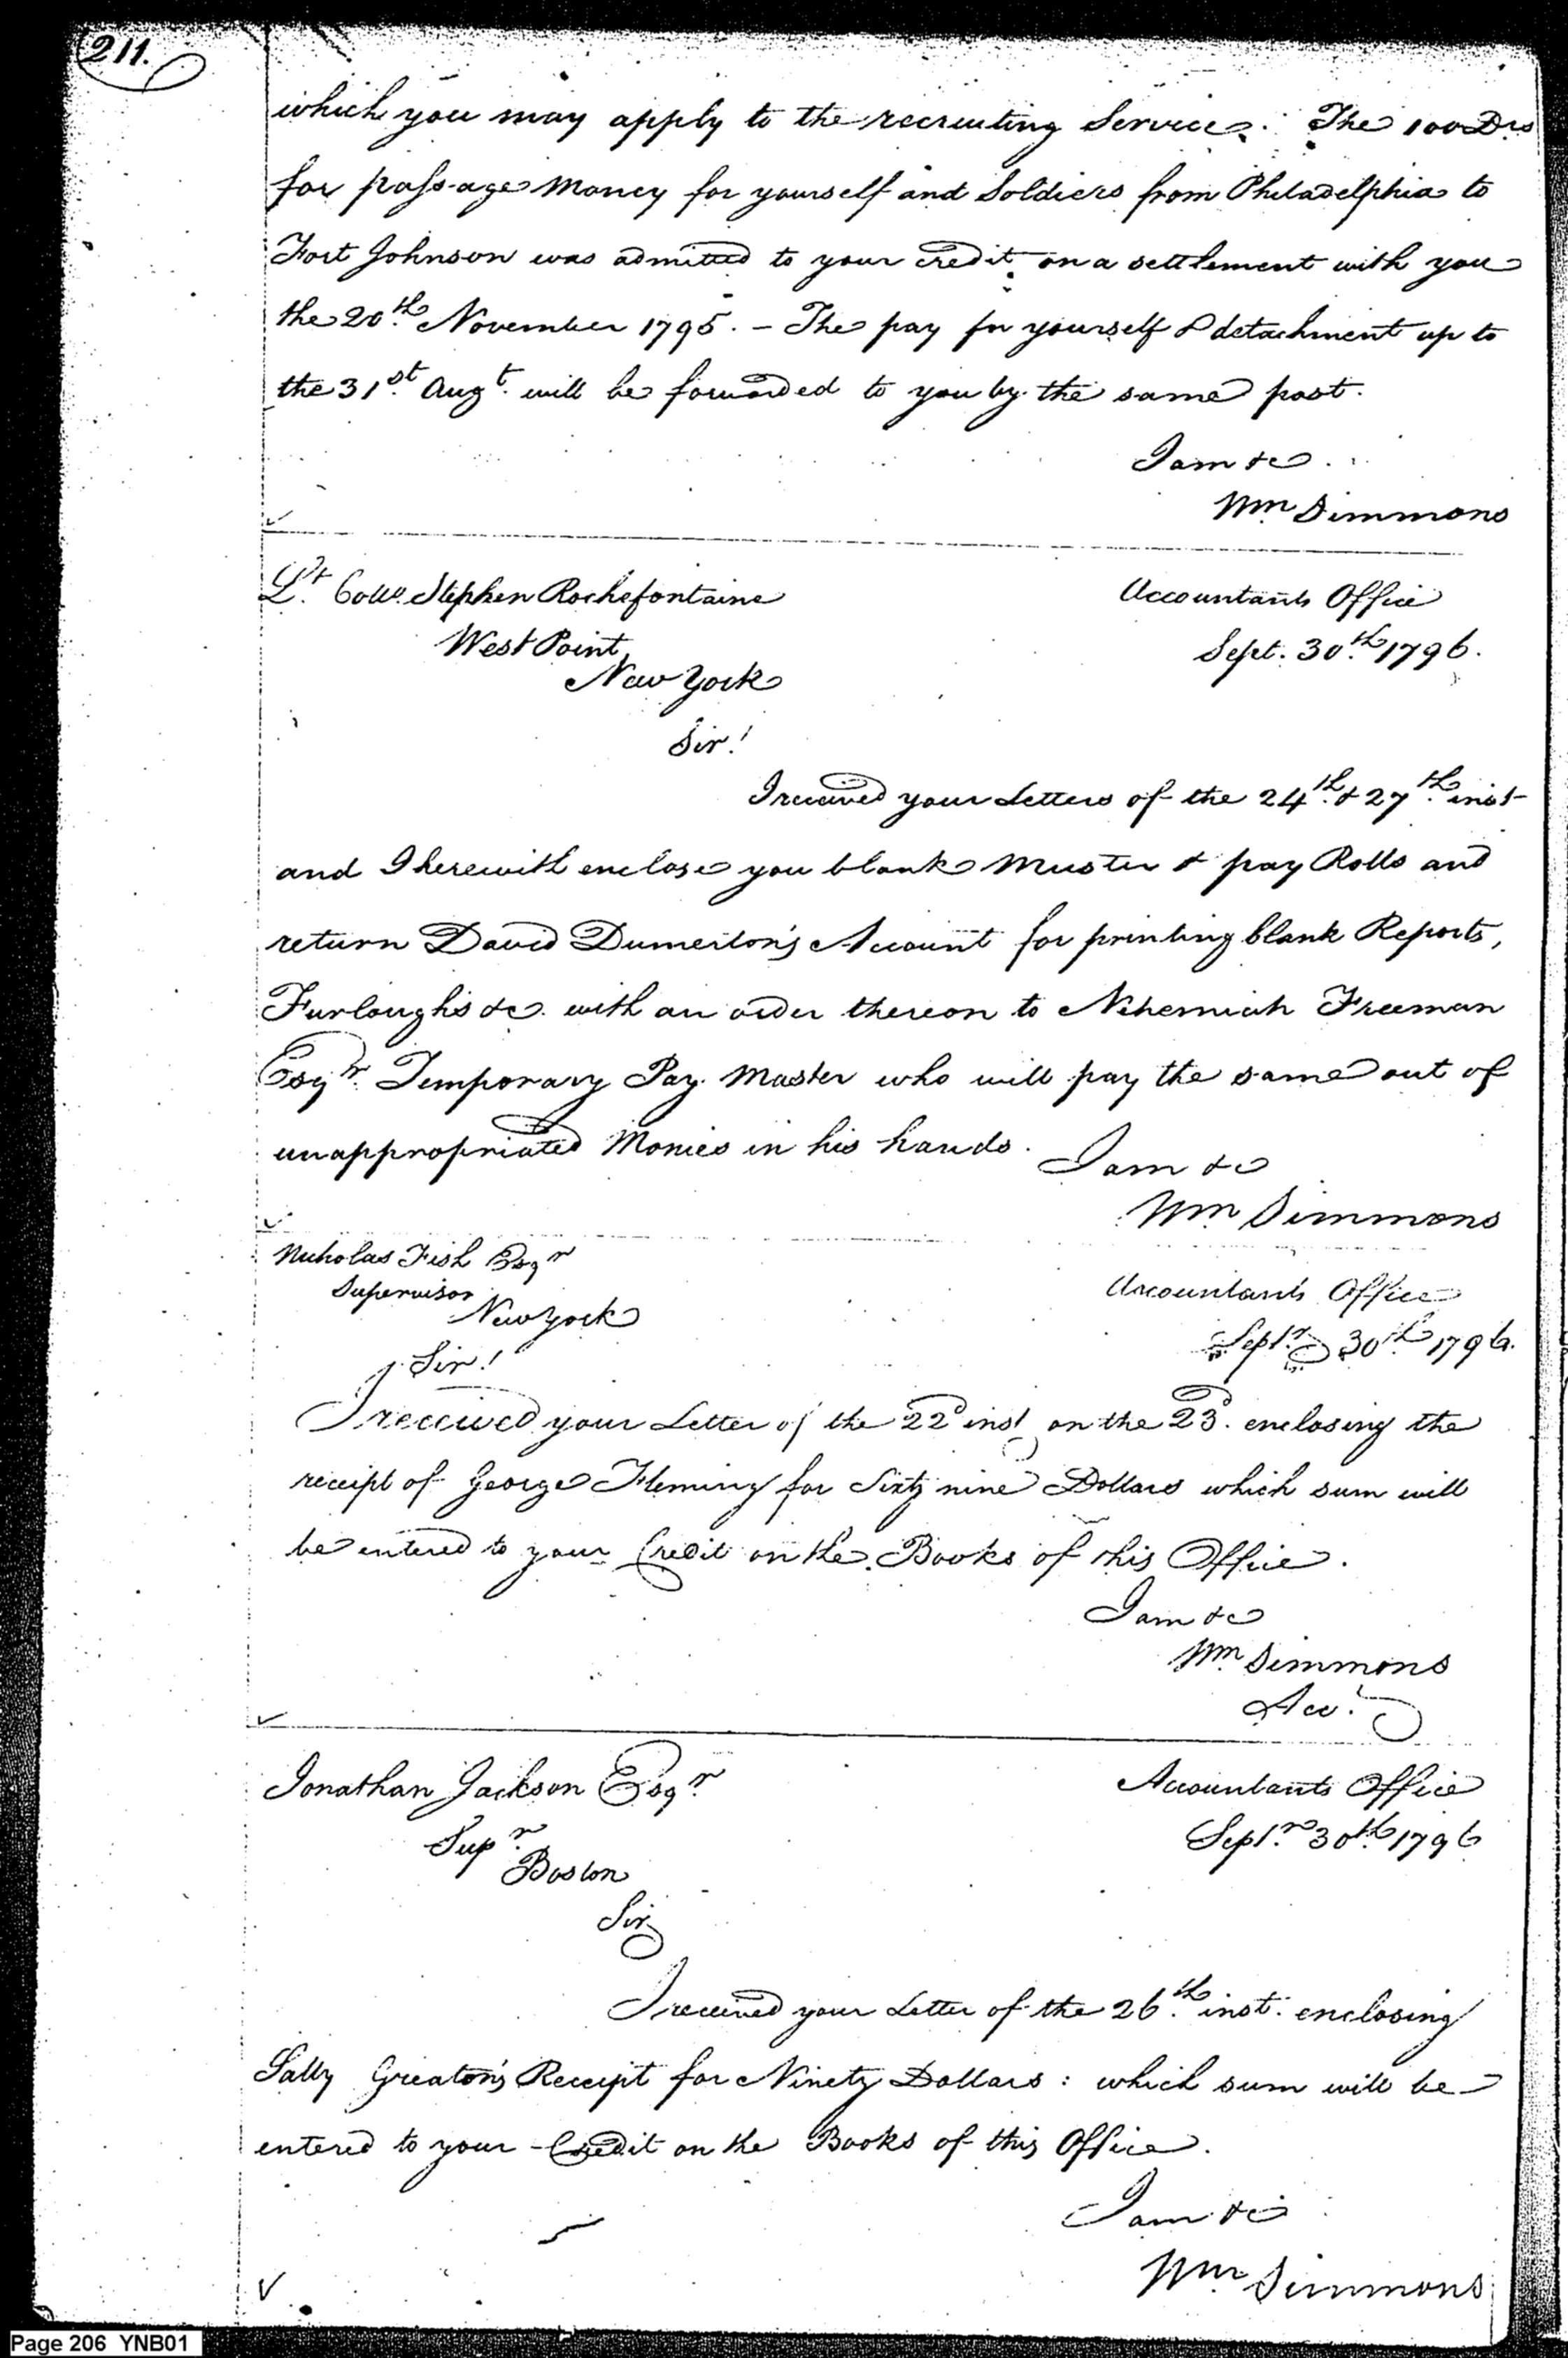 211.
which you may apply to the recruiting Service. The 100 Drs
for passage Money for yourself and Soldiers from Philadelphia to
Fort Johnson was admitted to your credit on a settlement with you
the 20th. November 1795. – The pay for yourself & detachment up to
the 31st. Augt. will be forwarded to you by the same post.
I am &c.
Wm Simmons
Lt. Coll. Stephen Rochefontaine
Accountants Office
West Point
Sept. 30th. 1796.
New York
Sir!
I received your Letters of the 24th. & 27th. inst
and I herewith enclose you blank Muster & pay Rolls and
return David Dumerton's Account for printing blank Reports,
Furloughs &c. with an order thereon to Nehemiah Freeman
Esqr. Temporary Pay Master who will pay the same out of
unappropriated Monies in his hands.
I am &c
Wm Simmons
Nicholas Fish Esqr
Supervisor
Accountants Office
New York
Septr. 30th. 1796.
Sir!
I received your Letter of the 22d inst on the 23d. enclosing the
receipt of George Fleming for Sixty nine Dollars which sum will
be entered to your Credit on the Books of this Office.
I am &c
Wm Simmons
Acct.
Jonathan Jackson Esqr.
Accountants Office
Supr.
Septr. 30th 1796
Boston
Sir
I received your Letter of the 26th. inst. enclosing
Sally Greaton's Receipt for Ninety Dollars: which sum will be
entered to your Credit on the Books of this Office.
I am &c
Wm Simmons
Page 206 YNB01